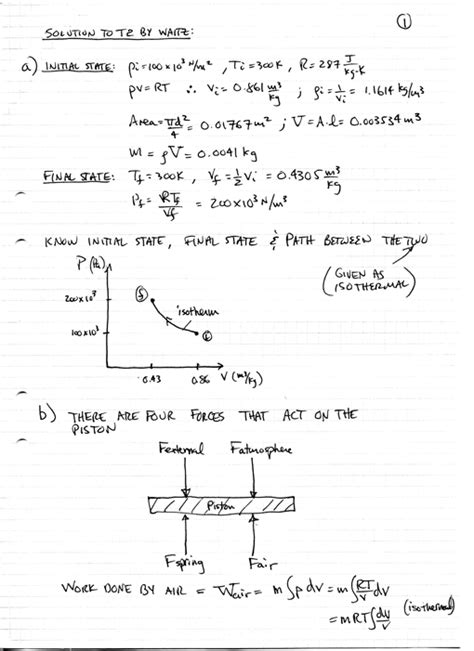 ①
SOLUTION TO T2 BY WAITZ:
a) INITIAL STATE: pi=100x10³ N/m², Ti=300K, R=287 J/kg-K
pv=RT ∴ vi= 0.861 m³/kg ; ρi=1/vi = 1.1614 kg/m3
Area=πd²/4 = 0.01767m² ; V=A·l= 0.003534 m³
m = ρV = 0.0041 kg
FINAL STATE: Tf=300K, vf=½vi = 0.4305 m³/kg
Pf= RTf/vf = 200x10³ N/m²
KNOW INITIAL STATE, FINAL STATE & PATH BETWEEN THE TWO
(GIVEN AS ISOTHERMAL)
P (Pa)
200x10³
f
isotherm
100x10³
i
0.43
0.86
V (m³/kg)
b) THERE ARE FOUR FORCES THAT ACT ON THE
PISTON
Fexternal Fatmosphere
Piston
Fspring Fair
WORK DONE BY AIR = Wair = m∫pdv = m∫RT/v dv
= mRT∫dv/v (isothermal)